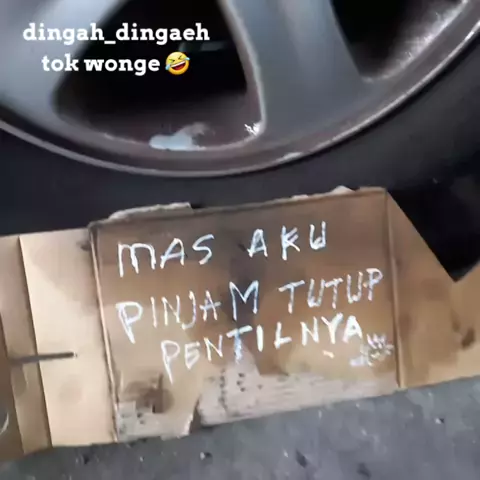 dingah_dingaeh
tok wonge🤣
MAS AKU
PINJAM TUTUP
PENTILNYA